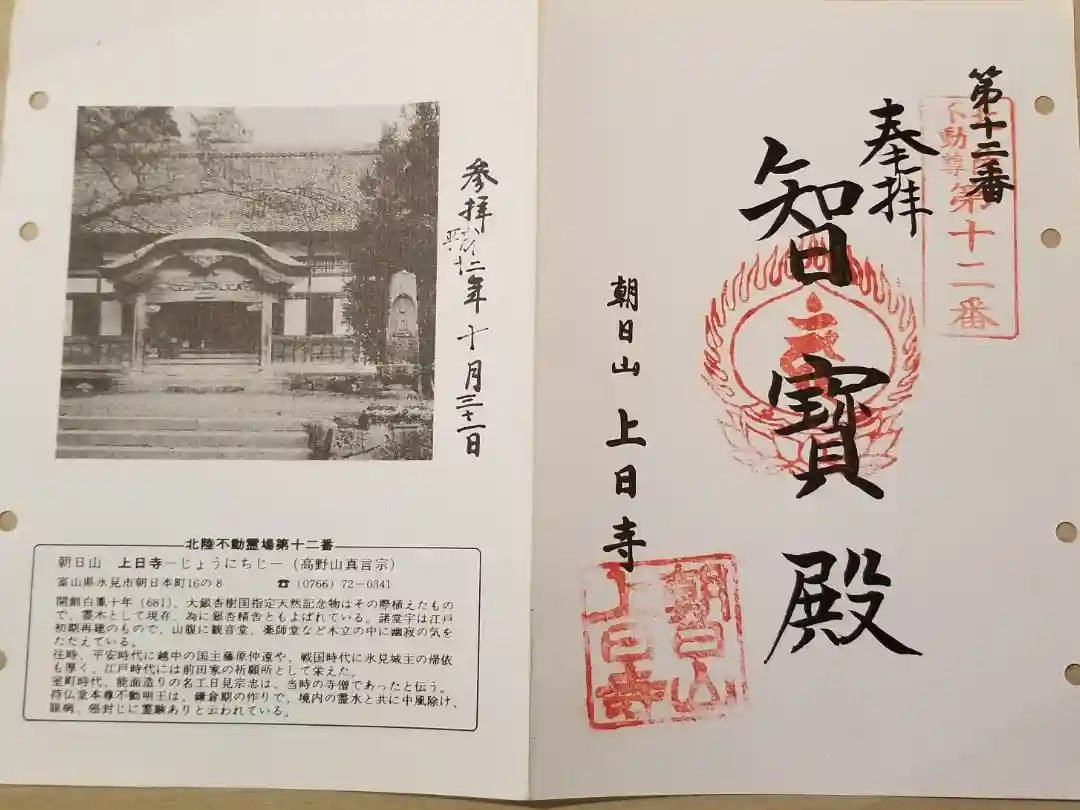 参拝
平成廿二年十月三十一日
北陸不動霊場第十二番
朝日山 上日寺―じょうにちじ―(高野山真言宗)
富山県氷見市朝日本町16の8 ☎(0766)72-0341
開創白鳳十年(681)、大銀杏樹国指定天然記念物はその際植えたもの
で、霊木として現存、為に銀杏精舎ともよばれている。諸堂宇は江戸
初期再建のもので、山腹に観音堂、薬師堂など木立の中に幽寂の気を
たたえている。
往時、平安時代に越中の国主藤原仲遠や、戦国時代に氷見城主の帰依
も厚く、江戸時代には前田家の祈願所として栄えた。
室町時代、能面造りの名工日見宗忠は、当時の寺僧であったと伝う。
持仏堂本尊不動明王は、鎌倉期の作りで、境内の霊水と共に中風除け、
眼病、癌封じに霊験ありと云われている。
第十二番
不動尊
第十二番
奉拝
智寶殿
朝日山 上日寺
朝日山
上日寺